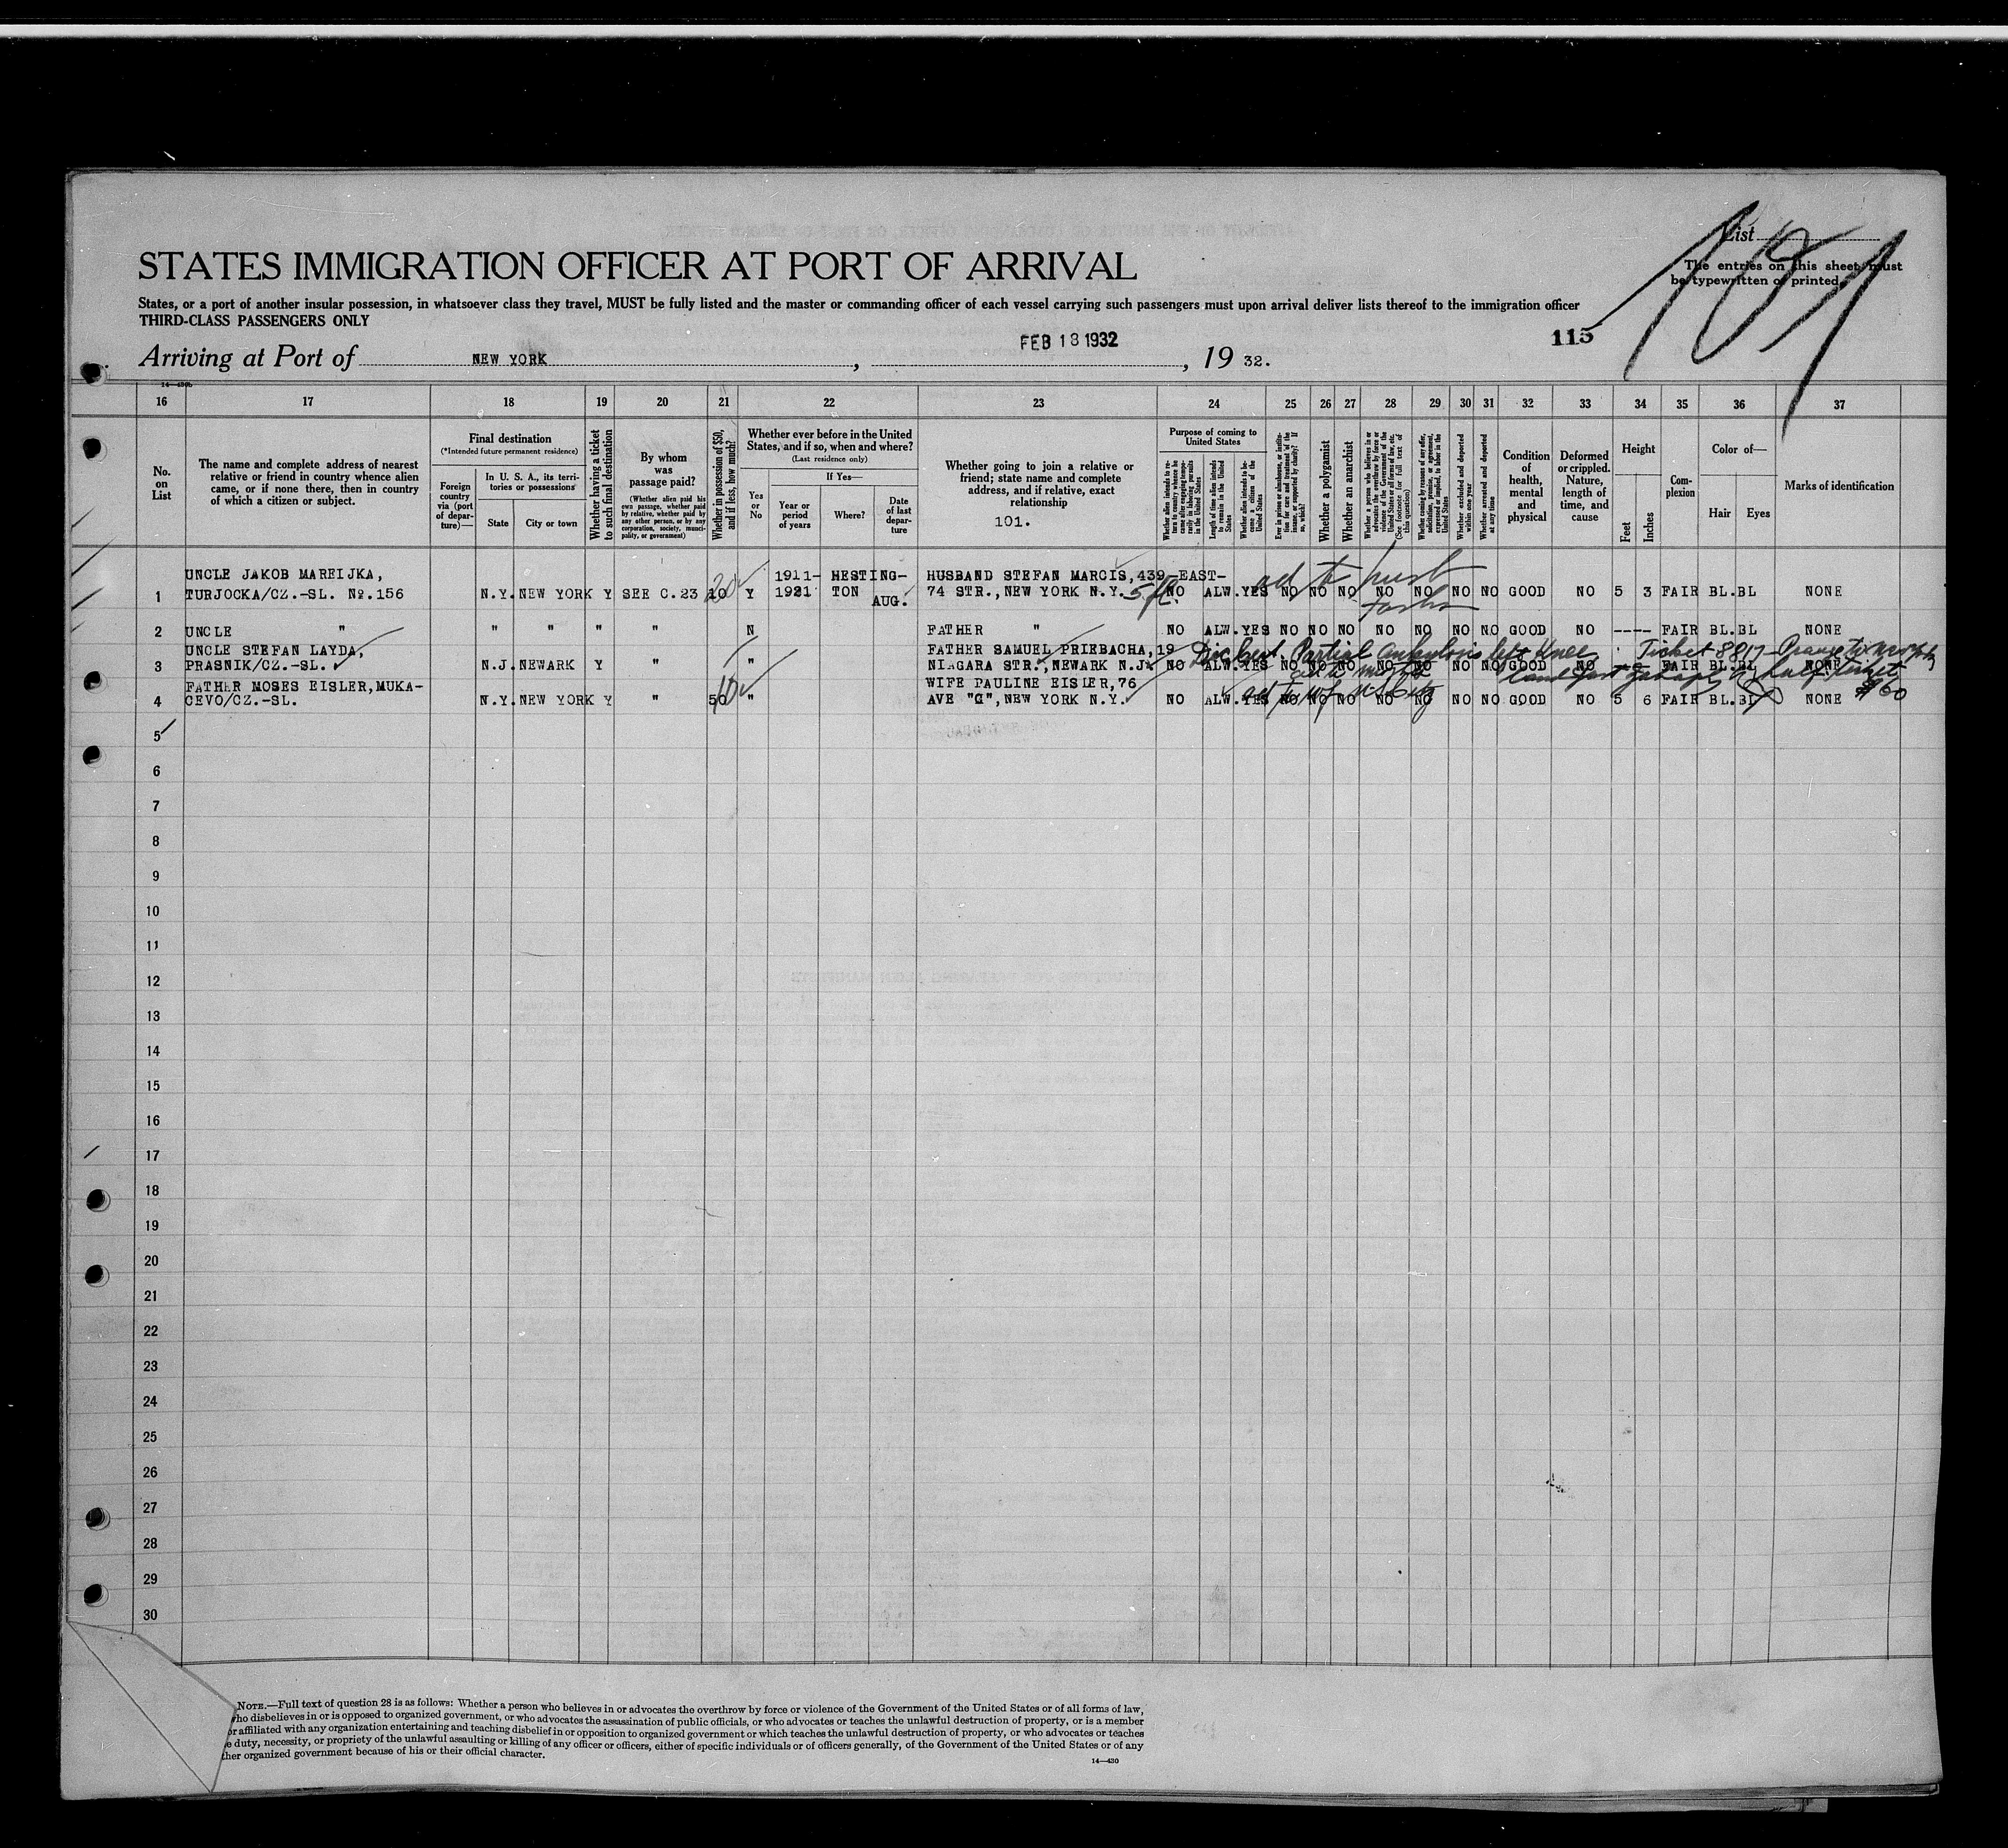 List
STATES IMMIGRATION OFFICER AT PORT OF ARRIVAL
The entries on this sheet must
be typewritten or printed.
States, or a port of another insular possession, in whatsoever class they travel, MUST be fully listed and the master or commanding officer of each vessel carrying such passengers must upon arrival deliver lists thereof to the immigration officer
THIRD-CLASS PASSENGERS ONLY
115
Arriving at Port of NEW YORK, FEB 18 1932, 19 32.
16 17 18 19 20 21 22 23 24 25 26 27 28 29 30 31 32 33 34 35 36 37
No. on List
The name and complete address of nearest
relative or friend in country whence alien
came, or if none there, then in country
of which a citizen or subject.
Final destination
(*Intended future permanent residence)
Foreign country via (port of departure)—
In U. S. A., its territories or possessions
State
City or town
Whether having a ticket to such final destination
By whom was passage paid?
(Whether alien paid his own passage, whether paid by relative, whether paid by any other person, or by any corporation, society, municipality, or government)
Whether in possession of $50, and if less, how much?
Whether ever before in the United
States, and if so, when and where?
(Last residence only)
Yes or No
If Yes—
Year or period of years
Where?
Date of last departure
Whether going to join a relative or
friend; state name and complete
address, and if relative, exact
relationship
101.
Purpose of coming to United States
Whether alien intends to return to country whence he came after engaging temporarily in laboring pursuits in the United States
Length of time alien intends to remain in the United States
Whether alien intends to become a citizen of the United States
Ever in prison or almshouse, or institution for care and treatment of the insane, or supported by charity? If so, which?
Whether a polygamist
Whether an anarchist
Whether a person who believes in or advocates the overthrow by force or violence of the Government of the United States or all forms of law, etc. (See footnote for full text of this question)
Whether coming by reasons of any offer, solicitation, promise, or agreement, expressed or implied, to labor in the United States
Whether excluded and deported within one year
Whether arrested and deported at any time
Condition of health, mental and physical
Deformed or crippled. Nature, length of time, and cause
Height
Feet
Inches
Complexion
Color of—
Hair
Eyes
Marks of identification
UNCLE JAKOB MAREIJKA, 1911- HESTING- HUSBAND STEFAN MARCIS, 439 EAST-
1 TURJOCKA/CZ.-SL. No.156 N.Y. NEW YORK Y SEE C.23 10 20 Y 1921 TON AUG. 74 STR., NEW YORK N.Y. NO ALW. YES NO NO NO NO NO NO NO GOOD NO 5 3 FAIR BL. BL NONE
2 UNCLE " " " " " N FATHER " NO ALW. YES NO NO NO NO NO NO NO GOOD NO ---- FAIR BL. BL NONE
UNCLE STEFAN LAYDA, FATHER SAMUEL PRIEBACHA, 19
3 PRASNIK/CZ.-SL. N.J. NEWARK Y " " NIAGARA STR., NEWARK N.J. NO ALW. YES NO NO NO NO NO NO NO GOOD NO FAIR BL. BL NONE
Partial ankylosis left knee Ticket 8817
half ticket
FATHER MOSES EISLER, MUKA- WIFE PAULINE EISLER, 76
4 CEVO/CZ.-SL. N.Y. NEW YORK Y " 50 10 " AVE "G", NEW YORK N.Y. NO ALW. YES NO NO NO NO NO NO NO GOOD NO 5 6 FAIR BL. BL NONE
5
6
7
8
9
10
11
12
13
14
15
16
17
18
19
20
21
22
23
24
25
26
27
28
29
30
NOTE.—Full text of question 28 is as follows: Whether a person who believes in or advocates the overthrow by force or violence of the Government of the United States or of all forms of law,
who disbelieves in or is opposed to organized government, or who advocates the assassination of public officials, or who advocates or teaches the unlawful destruction of property, or is a member
or affiliated with any organization entertaining and teaching disbelief in or opposition to organized government or which teaches the unlawful destruction of property, or who advocates or teaches
duty, necessity, or propriety of the unlawful assaulting or killing of any officer or officers, either of specific individuals or of officers generally, of the Government of the United States or of any
organized government because of his or their official character.
14—430